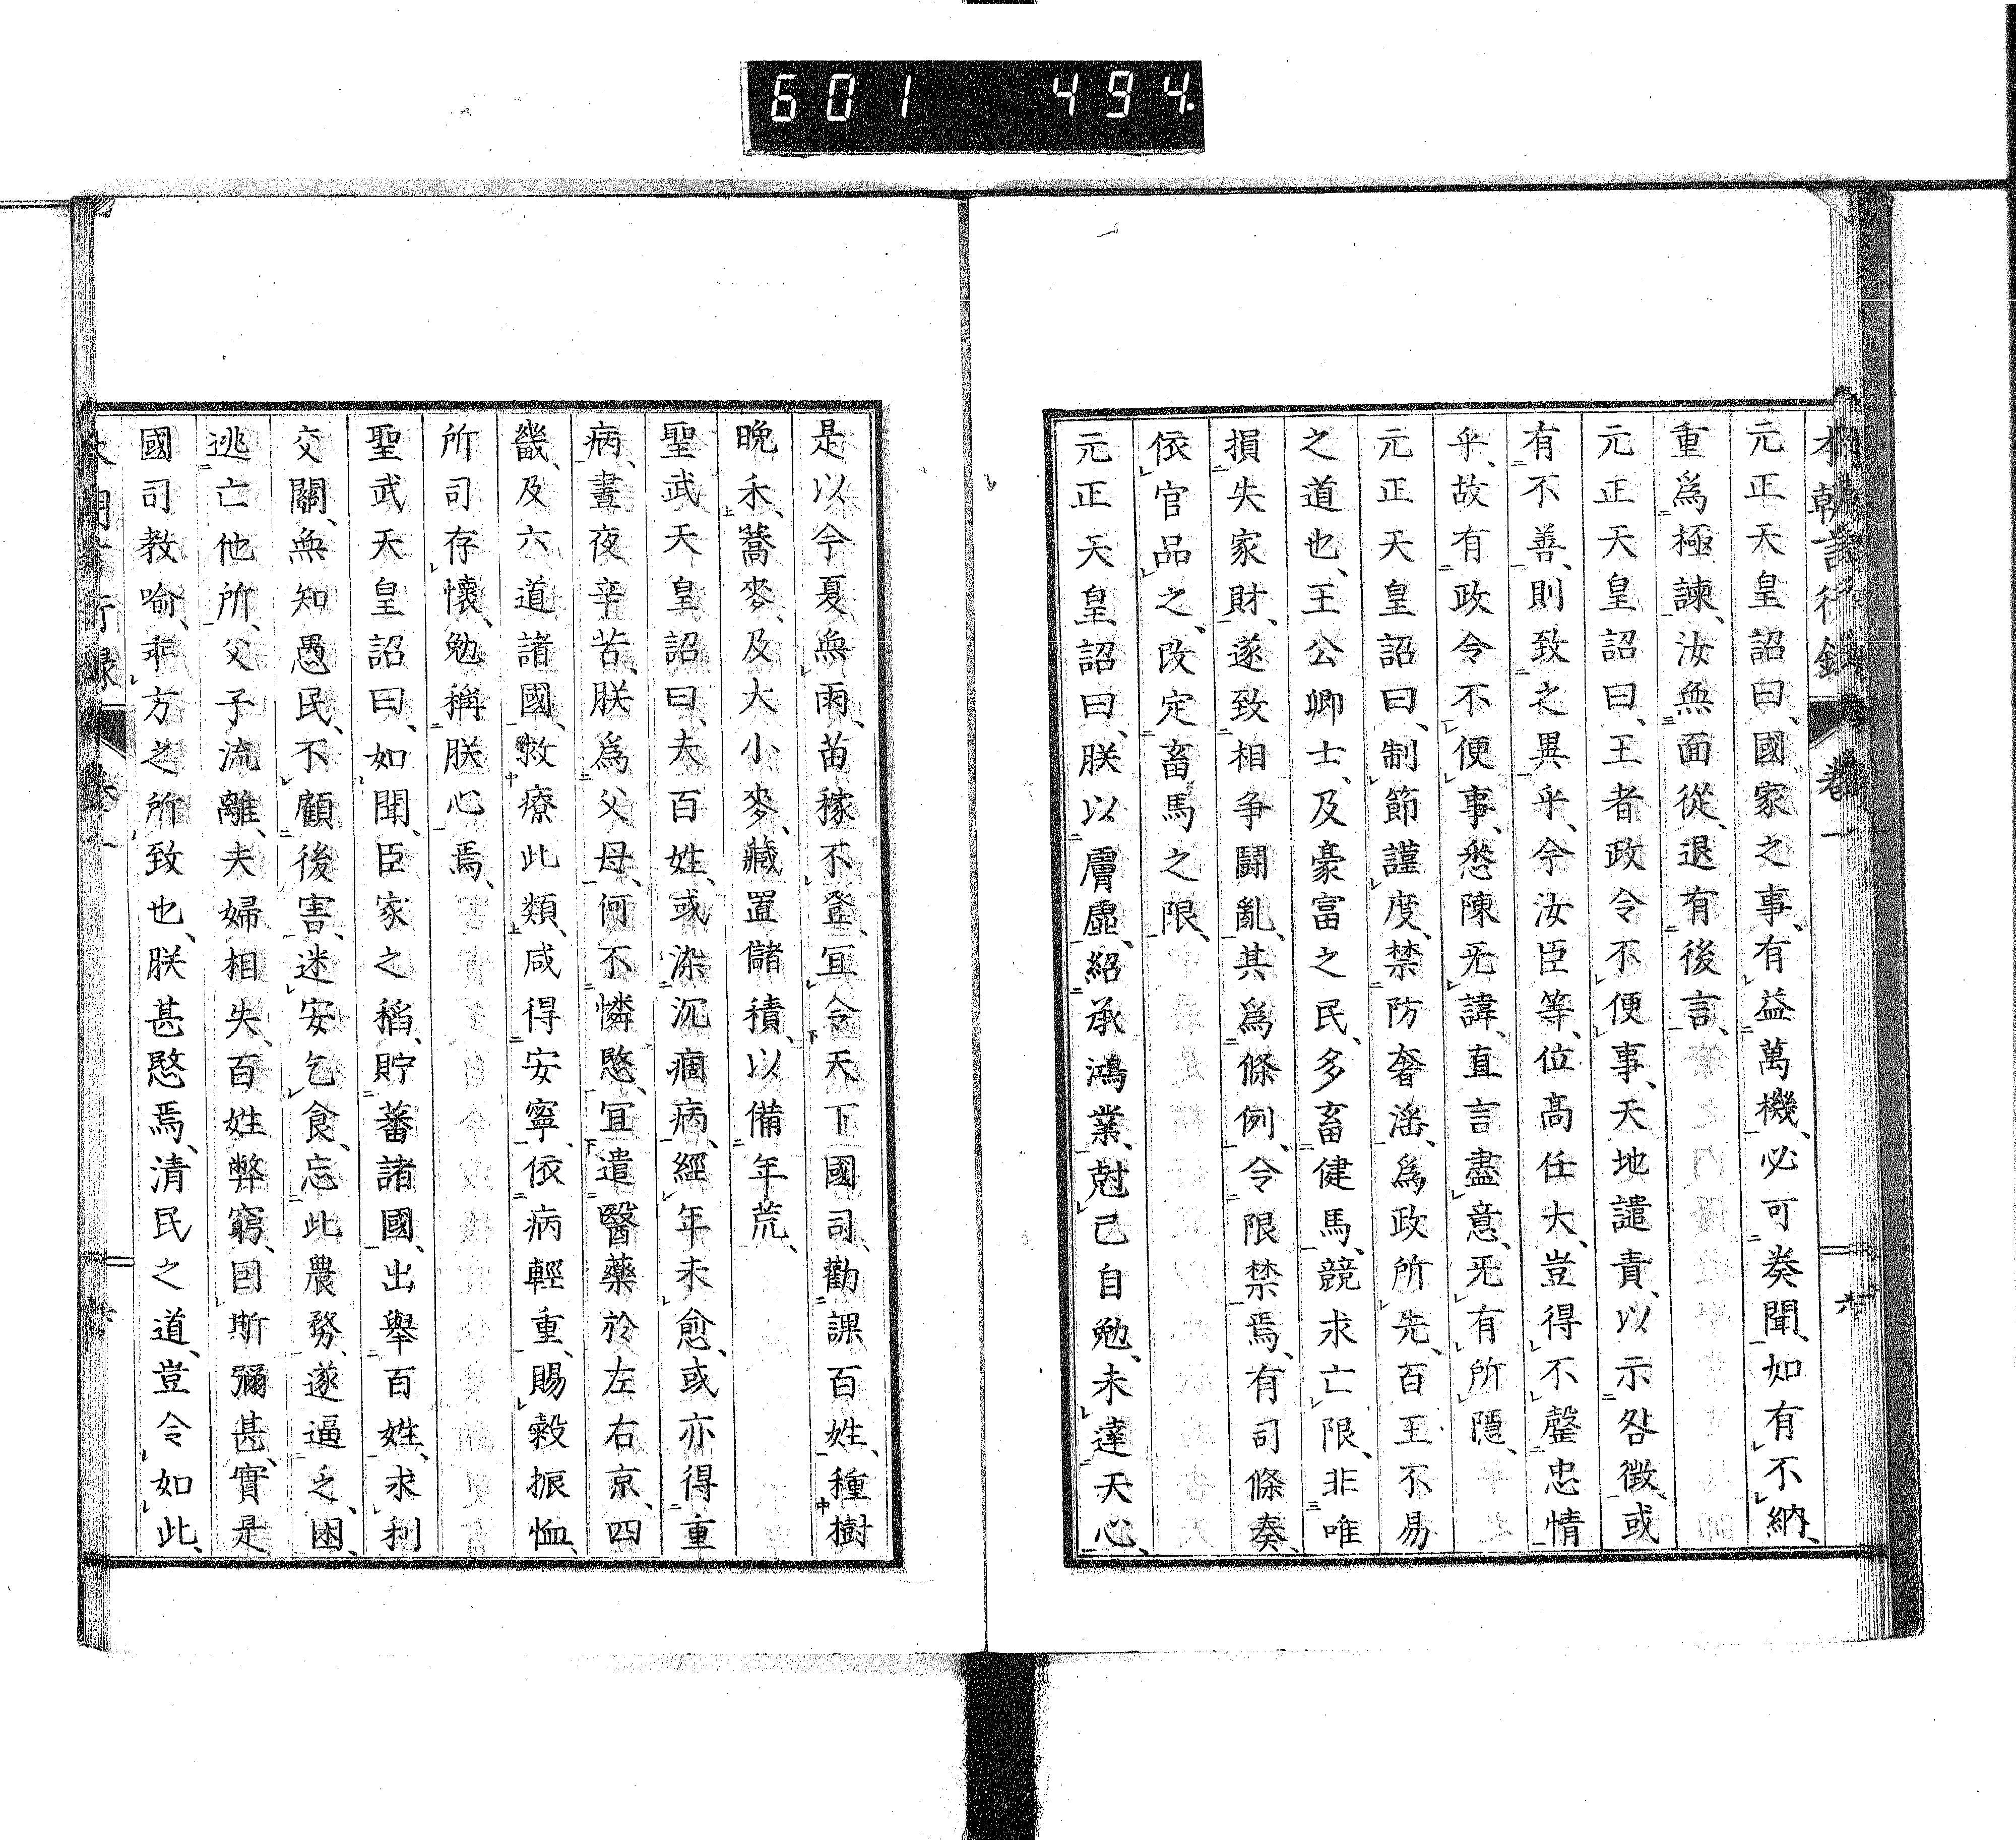 601 494.
元正天皇詔曰、國家之事、有益萬機、必可奏聞、如有不納、
重爲極諫、汝無面從、退有後言、
元正天皇詔曰、王者政令不便事、天地譴責、以示咎徴、或
有不善、則致之異乎、今汝臣等、位髙任大、豈得不罄忠情
乎、故有政令不便事、悉陳无諱、直言盡意、无有所隱、
元正天皇詔曰、制節謹度、禁防奢淫、爲政所先、百王不易
之道也、王公卿士、及豪富之民、多畜健馬、競求亡限、非唯
損失家財、遂致相争闘亂、其爲條例、令限禁焉、有司條奏、
依官品之、改定畜馬之限、
元正天皇詔曰、朕以膚虚、紹承鴻業、尅己自勉、未達天心、
是以今夏無雨、苗稼不登、宜令天下國司、勸課百姓、種樹
晩禾、蕎麥、及大小麥、藏置儲積、以備年荒、
聖武天皇詔曰、夫百姓、或染沉痼病、經年未愈、或亦得重
病、晝夜辛苦、朕爲父母、何不憐愍、宜遣醫藥於左右京、四
畿、及六道諸國、救療此類、咸得安寧、依病輕重、賜穀振恤、
所司存懷、勉稱朕心焉、
聖武天皇詔曰、如聞、臣家之稻、貯蕃諸國、出舉百姓、求利
交關、無知愚民、不顧後害、迷安乞食、忘此農務、遂逼乏、困、
逃亡他所、父子流離、夫婦相失、百姓弊窮、因斯彌甚、實是
國司教喩、乖方之所致也、朕甚愍焉、清民之道、豈令如此、